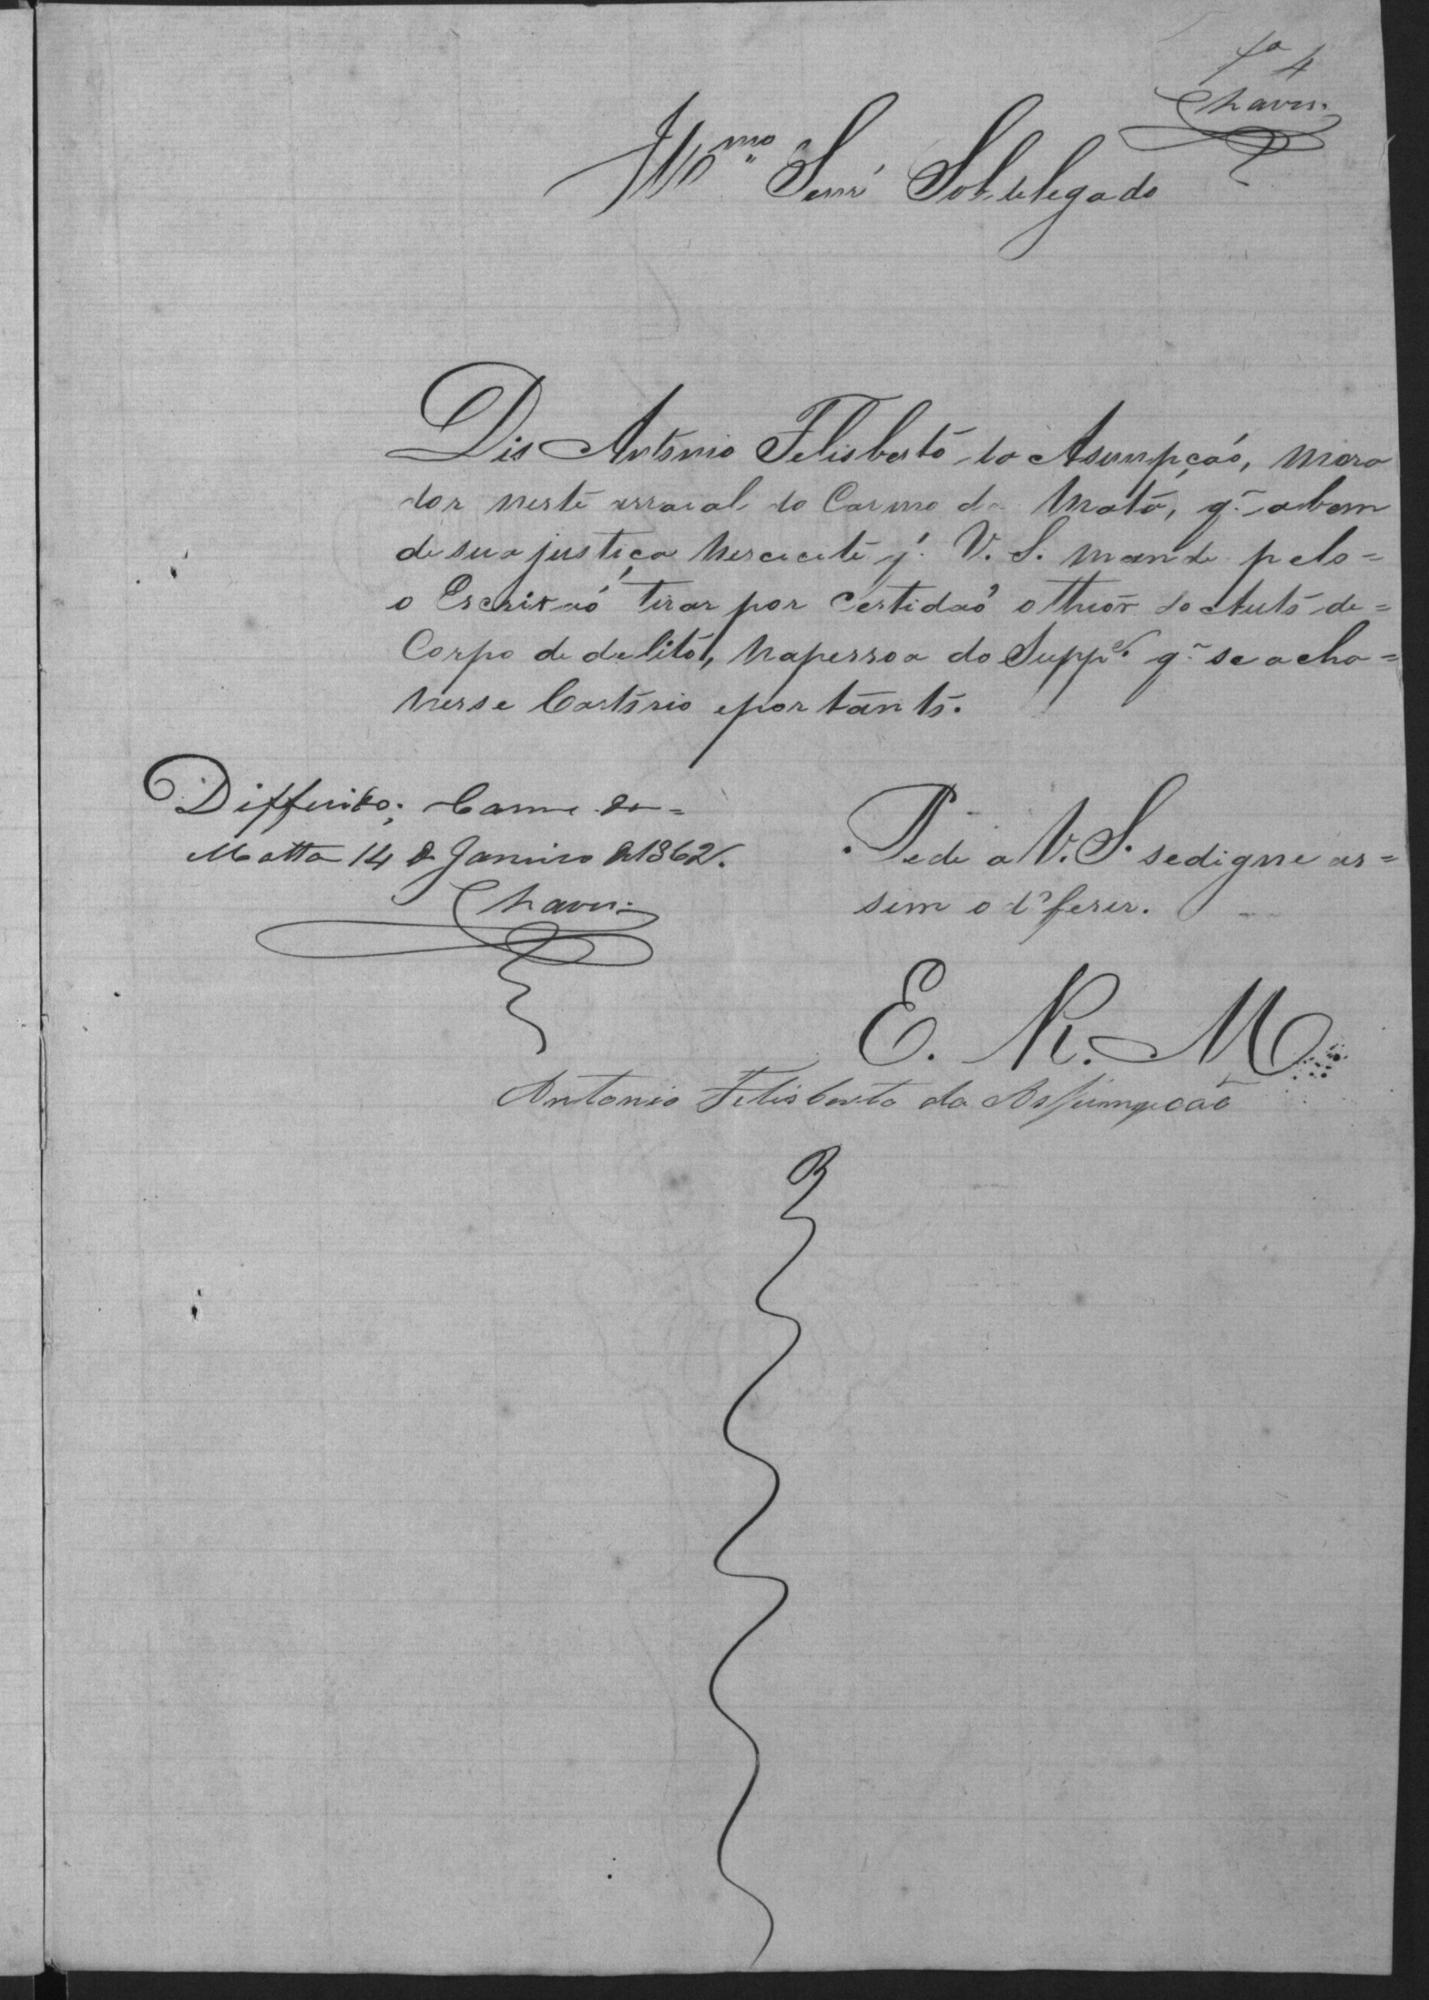 fª 4
Chaves.
Illmo. Senr. Sobdelegado
Dis Antonio Felisberto da Asumpção, mora
dor neste arraial do Carmo da Mata, q. abem
de sua justiça nececite q. V. S. mande pelo=
o Escrivão tirar por certidaõ o theor do Auto de=
Corpo de delito, na pessoa do Suppe. q. se acha=
nesse Cartorio e portanto.
Differido; Carmo da=
Matta 14 de Janeiro de 1862.
Chaves.
Pede a V. S. se digne as=
sim o d'ferir.
E. R. M
Antonio Felisberto da Assumpcaõ